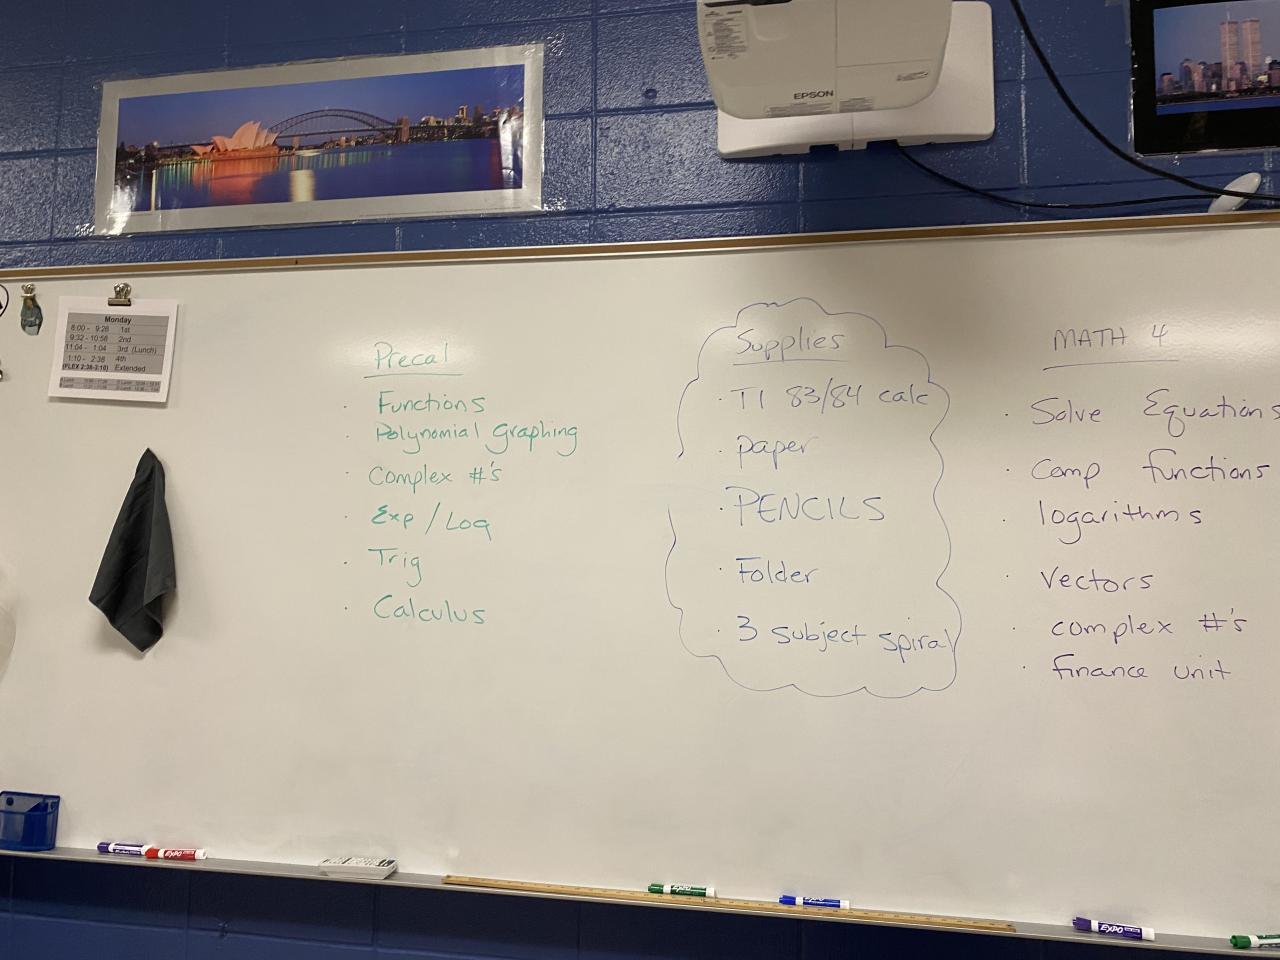 EPSON
Monday
8:00 - 9:26 1st
9:32 - 10:58 2nd
11:04 - 1:04 3rd (Lunch)
1:10 - 2:36 4th
(FLEX 2:36-3:10) Extended
Precal
· Functions
· Polynomial Graphing
· Complex #'s
· Exp / Log
· Trig
· Calculus
Supplies
· TI 83/84 calc
· paper
· PENCILS
· Folder
· 3 subject spiral
MATH 4
· Solve Equations
· Comp functions
· logarithms
· Vectors
· complex #'s
· finance unit
EXPO
EXPO
EXPO
EXPO
EXPO